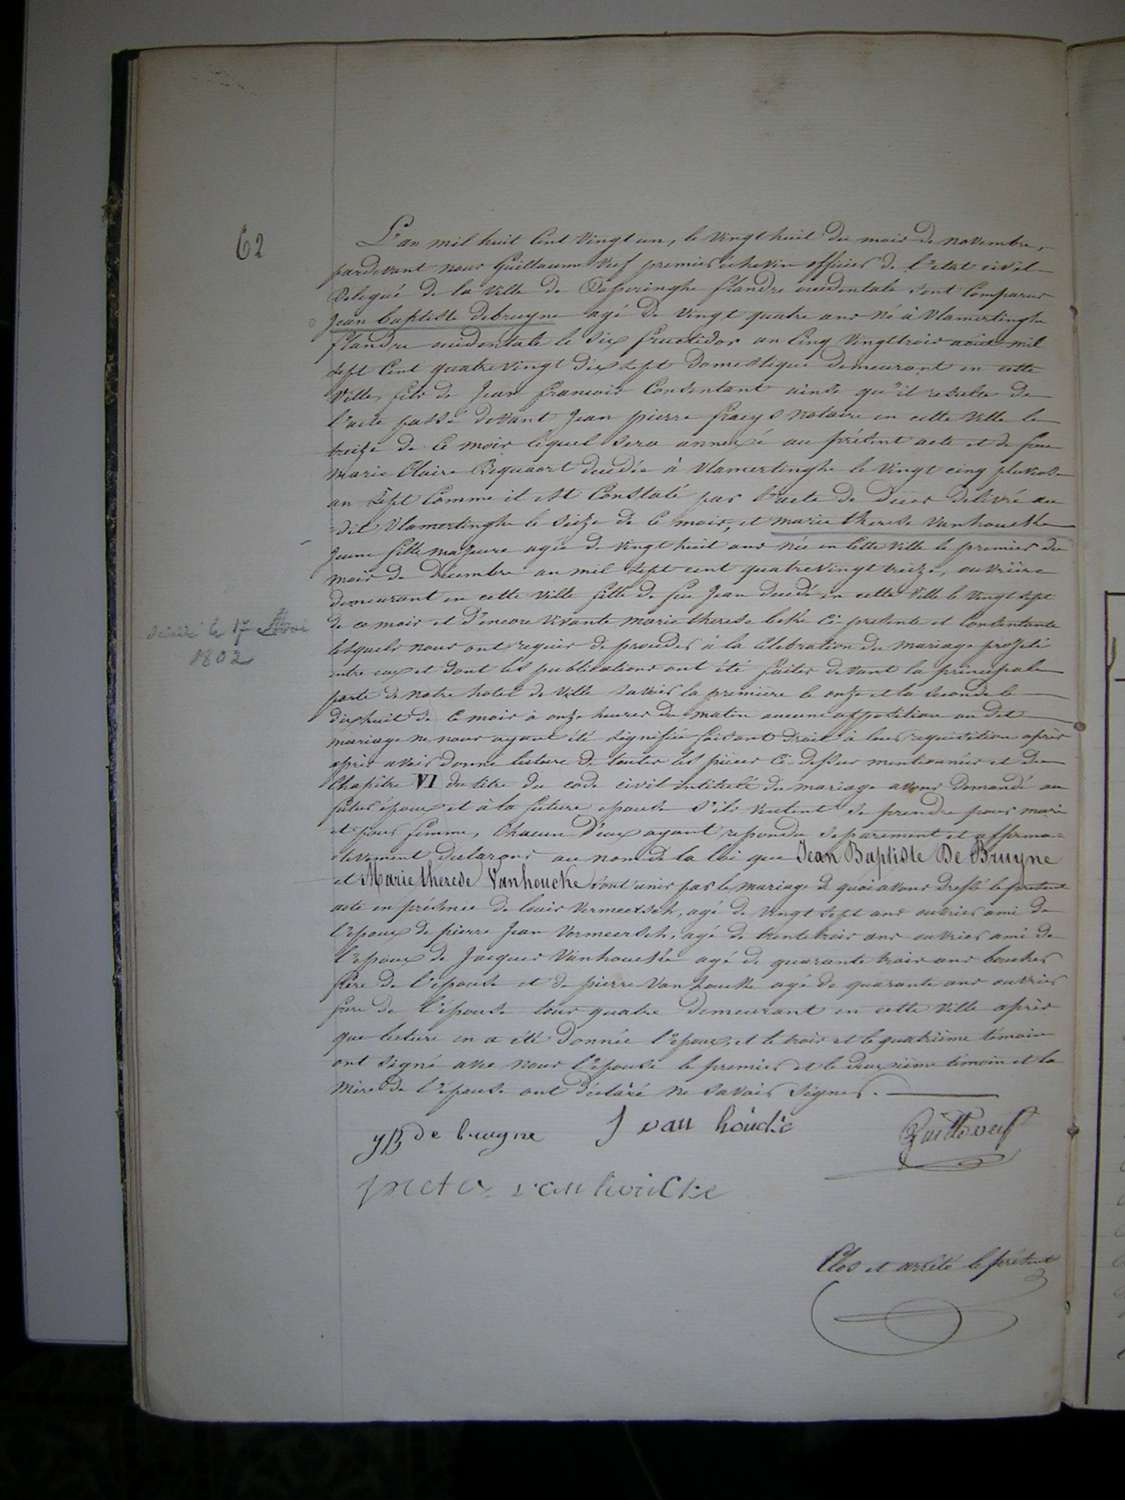 62
L'an mil huit cent vingt un, le vingt huit du mois de novembre,
pardevant nous Guillaume Vuf premier échevin officier de l'état civil
délégué de la ville de Poperinghe flandre occidentale sont comparus
Jean baptiste debruyne agé de vingt quatre ans né à Vlamertinghe
flandre occidentale le dix fructidor an cinq vingttrois août mil
sept cent quatre vingt dix sept domestique demeurant en cette
ville, fils de Jean francois consentant ainsi qu'il resulte de
l'acte passé devant Jean pierre notaire en cette ville le
treize de ce mois lequel sera annexé au présent acte et de feue
marie Claire décédée à Vlamertinghe le vingt cinq pluviose
an sept comme il est constaté par l'acte de décès délivré au
dit Vlamertinghe le seize de ce mois, et marie therese Vanhoucke
jeune fille majeure agée de vingt huit ans née en cette ville le premier du
mois de décembre an mil sept cent quatrevingt treize, ouvrière
demeurant en cette ville fille de feu Jean décédé en cette ville le vingt sept
de ce mois et d'encore vivante marie therese ci presente et consentante
décédé le 17
1802
lesquels nous ont requis de proceder à la celebration du mariage projeté
entre eux et dont les publications ont été faites devant la principale
porte de notre hotel de ville savoir la première le onze et la seconde le
dixhuit de ce mois à onze heures du matin aucune opposition au dit
mariage ne nous ayant été signifiée faisant droit à leur requisition après
après avoir donné lecture de toutes les pièces ci dessus mentionnées et du
Chapitre VI du titre du code civil intitulé du mariage avons demandé au
futur époux et à la future epouse s'ils veulent se prendre pour mari
et pour femme, chacun d'eux ayant repondu separement et affirma=
tivement declarons au nom de la loi que Jean Baptiste De Bruyne
et Marie therese Vanhoucke sont unis par le mariage de quoi avons dressé le present
acte en présence de louis Vermeersch, agé de vingt sept ans ouvrier ami de
l'epoux de pierre Jean Vermeersch, agé de trentetrois ans ouvrier ami de
l'epoux de Jacques Vanhoucke agé de quarante trois ans boucher
frère de l'épouse et de pierre Vanhoucke agé de quarante ans ouvrier
frere de l'épouse tous quatre demeurant en cette ville après
que lecture en a été donnée l'epoux, et le trois et le quatrième témoin
ont signé avec nous l'épouse le premier et le deuxième témoin et la
mère de l'epouse ont déclaré ne savoir signer.
de bruyne J van houcke
pieter van houcke
Clos et arrêté le présent